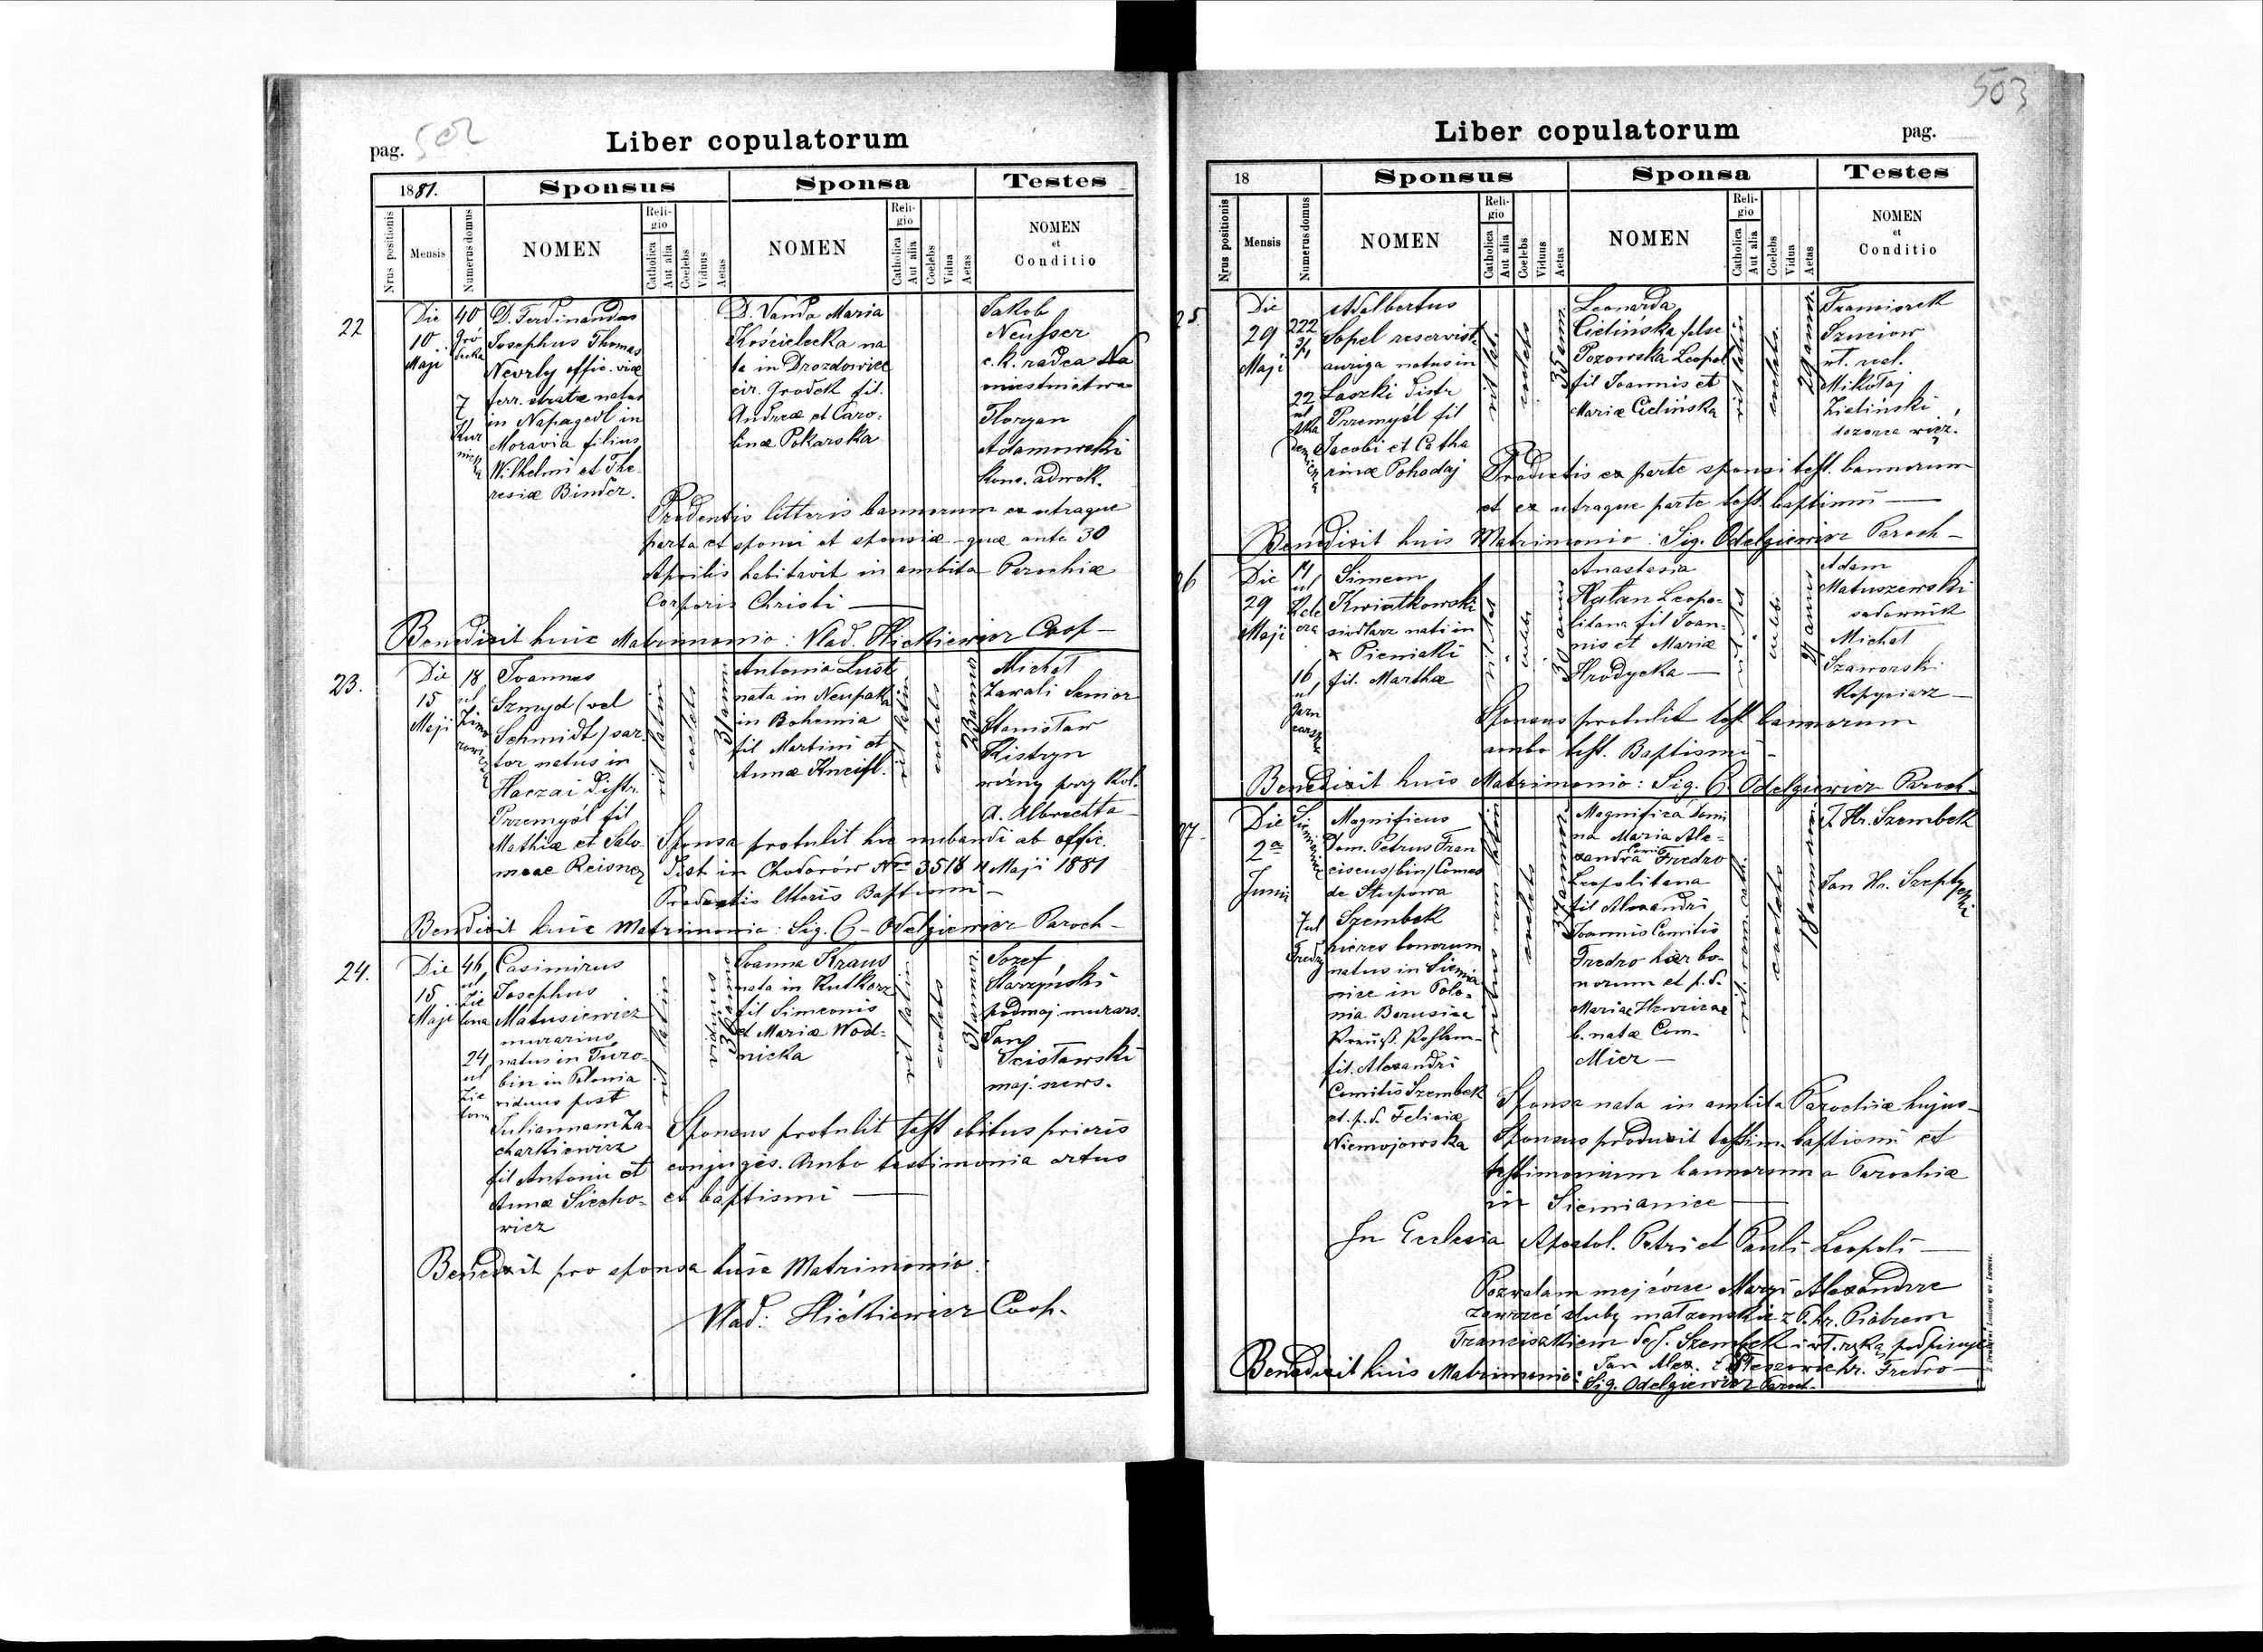 pag. 502
Liber copulatorum
1881.
Sponsus
Sponsa
Testes
Nrus positionis
Mensis
Numerus domus
NOMEN
Religio
Catholica
Aut alia
Coelebs
Viduus
Aetas
NOMEN
Religio
Catholica
Aut alia
Coelebs
Vidua
Aetas
NOMEN
et
Conditio
22
Die
10
Maji
40
Gró
decka
7
Kur
nicka
D. Ferdinandus
Josephus Thomas
Nevrly offic. viæ
ferr. stratæ natus
in Napagedl in
Moravia filius
Wilhelmi et The
resiæ Binder.
D. Vanda Maria
Kościelecka na
ta in Drozdowice
cir. Grodek fil.
Andreæ et Caro-
linæ Pokarska
Jakob
Neusser
c. k. radca Na
miestnictwa
Floryan
Adamowski
konc. adwok.
Prodentis litteris bannorum ex utraque
parte et sponsi et sponsæ - quæ ante 30
Aprilis habitavit in ambitu Parochiæ
Corporis Christi —
Benedixit huic Matrimonio: Vlad. Hićkiewicz Coop -
23.
Die
15
Maji
18
ul
Zimo
rowi
cza
Joannes
Szmyd (vel
Schmidt) sar
tor natus in
Haczai Distr.
Przemyśl fil
Mathiæ et Salo
meae Reisner
rit latin
coelebs
31 anni
Antonia Lust
nata in Neupaka
in Bohemia
fil Martini et
Annæ Kneifl.
rit latin
coelebs
23 annor
Michał
Zawali Senior
Stanisław
Kistryn
woźny przy Kol.
A. Albrechta
Sponsa protulit lic nubandi ab offic.
Dist in Chodorów Nro 3518 4 Maji 1881
Productis litteris Baptismi —
Benedixit huic Matrimonio: Sig. C. Odelgiewicz Paroch -
24.
Die
15
Maji
46
ul
Zie
lona
24
ul
Zie
lona
Casimirus
Josephus
Matusiewicz
murarius
natus in Turo-
bin in Polonia
viduus post
Juliannam Za-
charkiewicz
fil Antonii et
Annæ Siecho-
wicz
rit latin
viduus
Joanna Kraus
nata in Kutkorz
fil Simeonis
et Mariæ Wod-
nicka
rit latin
coelebs
31 annor.
Jozef
Starzyński
podmaj. murars.
Jan
Scisławski
maj. news.
Sponsus protulit test obitus prioris
conjugis. Ambo testimonia ortus
et baptismi —
Benedixit pro sponsa huic Matrimonio:
Vlad: Hićkiewicz Coop.
503
Liber copulatorum
pag.
18
Sponsus
Sponsa
Testes
Nrus positionis
Mensis
Numerus domus
NOMEN
Religio
Catholica
Aut alia
Coelebs
Viduus
Aetas
NOMEN
Religio
Catholica
Aut alia
Coelebs
Vidua
Aetas
NOMEN
et
Conditio
25
Die
29
Maji
222
3/4
22
ul
Aka
demicka
Adalbertus
Sopel reservist
auriga natus in
Laszki Distr
Przemyśl fil
Jacobi et Catha
rinæ Pohadaj
rit lat.
coelebs
35 ann.
Leonarda
Cielińska false
Pozowska Leopol
fil Joannis et
Mariæ Cielińska
rit latin
coelebs.
29 annor.
Franciszek
Szuciow
ut. vel.
Mikołaj
Zieliński
dozorca więź.
Productis ex parte sponsi test. bannorum
et ex utraque parte test baptismi —
Benedixit huic Matrimonio: Sig. Odelgiewicz Paroch -
26
Die
29
Maji
14
ul
Kele
ora
16
ul
Garn
carska
Simeon
Kwiatkowski
siodlarz nati in
x Pieniaki
fil. Marthæ
rit lat
coelebs
30 annor
Anastasia
Hatan Leopo-
litana fil Joan-
nis et Mariæ
Hrodycka —
rit lat
coelebs
27 annor
Adam
Matuszewski
sadownik
Michał
Szaworski
Kopyciarz —
Sponsus protulit test bannorum
ambo test. Baptismi —
Benedixit huic Matrimonio: Sig. C. Odelgiewicz Paroch -
27.
Die
2a
Junii
Siemianice
7 ul
Fredry
Magnificus
Dom. Petrus Fran
ciscus (bin) Comes
de Słupowa
Szembek
hieres bonorum
natus in Siemia
nice in Polo-
nia Borusiae
fil. Alexandri
Comitis Szembek
et. p. d. Felicia
Niemojowska
coelebs
Magnifica Domi
na Maria Ale-
xandra Com. Fredro
Leopolitana
fil Alexandri
Joannis Comitis
Fredro hær bo-
norum et p. d.
Mariæ Henricae
b. natæ Com-
Mier —
rit. rom. cath.
coelebs
18 annorum
Z Hr. Szembek
Jan Hr. Szeptycki
Sponsa nata in ambitu Parochiæ hujus -
Sponsus produxit testim. baptismi et
testimonium bannorum a Parochia
in Siemianice —
In Ecclesia Apostol. Petri et Pauli Leopoli —
Pozwalam mej córce Maryi Alexandrze
zawrzeć śluby małżeńskie z P. hr. Piotrem
Franciszkiem Szembek i wł. ręką podpisuję
Jan Alex. z Pleszowic hr. Fredro —
Benedixit huic Matrimonio: Sig. Odelgiewicz Paroch -
Z Drukarni Ludowej we Lwowie.